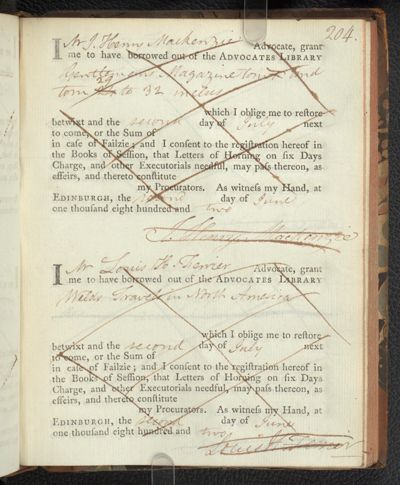 204.
I Mr J. Henry Mackenzie Advocate, grant
me to have borrowed out of the ADVOCATES LIBRARY
Gentlemens Magazine tom and
tom 29 to 32
betwixt and the second day of July which I oblige me to reſtore next
to come, or the Sum of
in caſe of Failzie; and I conſent to the regiſtration hereof in
the Books of Seſſion, that Letters of Horning on ſix Days
Charge, and other Executorials needful, may paſs thereon, as
effeirs, and thereto conſtitute
my Procurators. As witneſs my Hand, at
EDINBURGH, the second day of June
one thouſand eight hundred and two
J. Henry Mackenzie
I Mr Louis H. Ferrier Advocate, grant
me to have borrowed out of the ADVOCATES LIBRARY
Welds Travels in North America
which I oblige me to reſtore
betwixt and the second day of July next
to come, or the Sum of
in caſe of Failzie; and I conſent to the regiſtration hereof in
the Books of Seſſion, that Letters of Horning on ſix Days
Charge, and other Executorials needful, may paſs thereon, as
effeirs, and thereto conſtitute
my Procurators. As witneſs my Hand, at
EDINBURGH, the second day of June
one thouſand eight hundred and two
Louis H. Ferrier